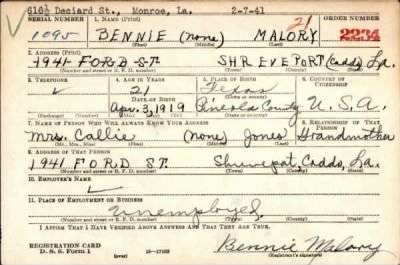 616½ Deciard St., Monroe, La. 2-7-41
SERIAL NUMBER 1. NAME (Print) ORDER NUMBER
1095 BENNIE (none) MALORY 21 2234
(First) (Middle) (Last)
2. ADDRESS (Print)
1941 FORD ST. SHREVEPORT (Caddo) La.
(Number and street or R. F. D. number) (Town) (County) (State)
3. TELEPHONE 4. AGE IN YEARS 5. PLACE OF BIRTH 6. COUNTRY OF CITIZENSHIP
✓ 21 Texas
DATE OF BIRTH
Apr. 3, 1919 County U.S.A.
(Exchange) (Number) (Mo.) (Day) (Yr.) (State or country)
7. NAME OF PERSON WHO WILL ALWAYS KNOW YOUR ADDRESS 8. RELATIONSHIP OF THAT PERSON
Mrs. Callie (none) Jones Grandmother
(Mr., Mrs., Miss) (First) (Middle) (Last)
9. ADDRESS OF THAT PERSON
1941 FORD ST. Shreveport, Caddo, La.
(Number and street or R. F. D. number) (Town) (County) (State)
10. EMPLOYER'S NAME
✓
11. PLACE OF EMPLOYMENT OR BUSINESS
Unemployed,
(Number and street or R. F. D. number) (Town) (County) (State)
I AFFIRM THAT I HAVE VERIFIED ABOVE ANSWERS AND THAT THEY ARE TRUE.
REGISTRATION CARD
D. S. S. Form 1 16-17105 Bennie Malory
(Registrant's signature)